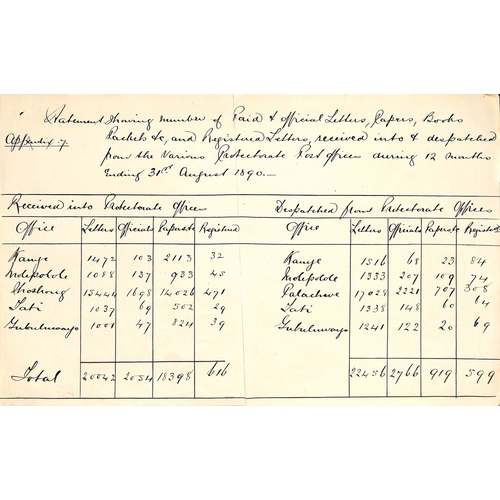 Statement Showing number of Paid & official Letters, Papers, Books
Appendix 7. Packets &c, and Registered Letters, received into & despatched
from the Various Protectorate Post offices during 12 months
Ending 31st August 1890.—
Received into Protectorate Offices Despatched from Protectorate Offices
Office Letters Officials Papers&c Registered Office Letters Officials Papers&c Registered
Kanye 1472 103 2113 32 Kanye 1516 68 23 84
Molepolole 1088 137 933 45 Molepolole 1333 207 109 74
Shoshong 15444 1698 14026 471 Palachwe 17028 2221 707 308
Tati 1037 69 502 29 Tati 1338 148 60 64
Gubuluwayo 1001 47 824 39 Gubuluwayo 1241 122 20 69
Total 20042 2054 18398 616 22456 2766 919 599